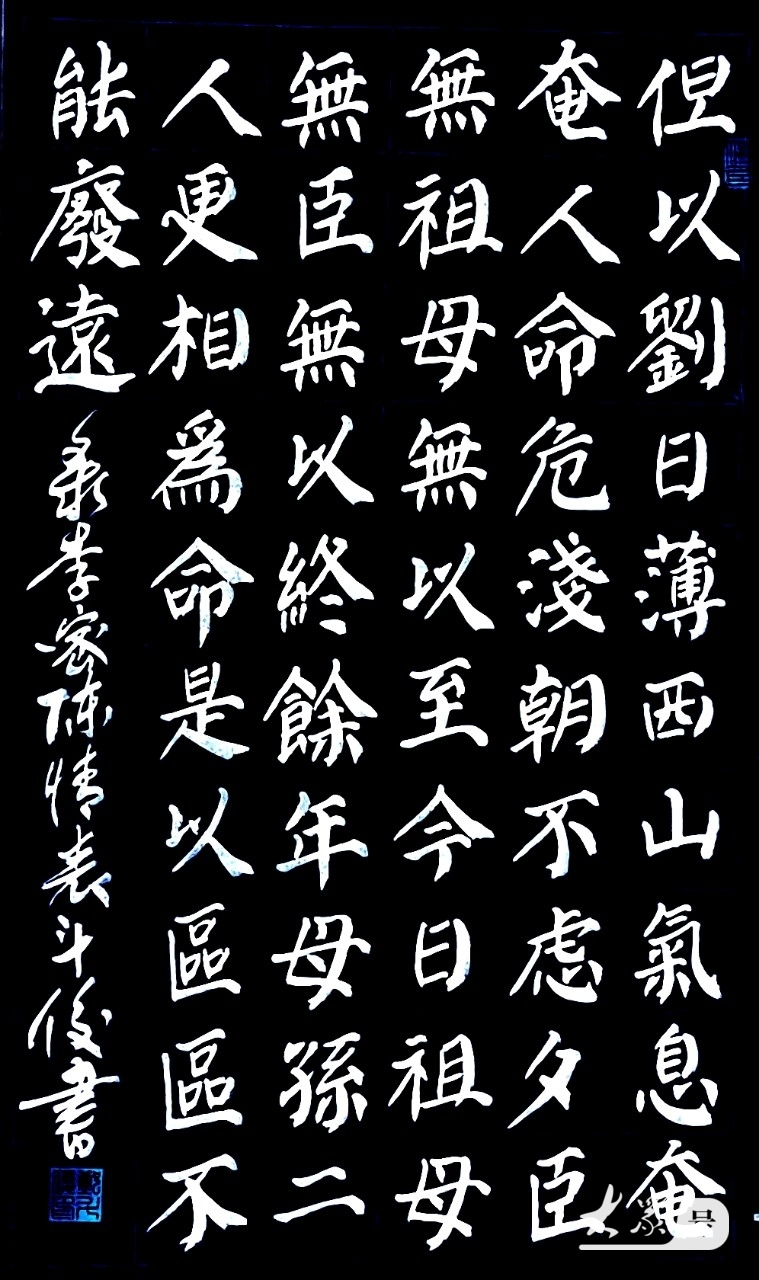 但以劉日薄西山氣息奄
奄人命危淺朝不虑夕臣
無祖母無以至今日祖母
無臣無以終餘年母孫二
人更相爲命是以區區不
能廢遠
录李密陈情表斗俊書
大象号